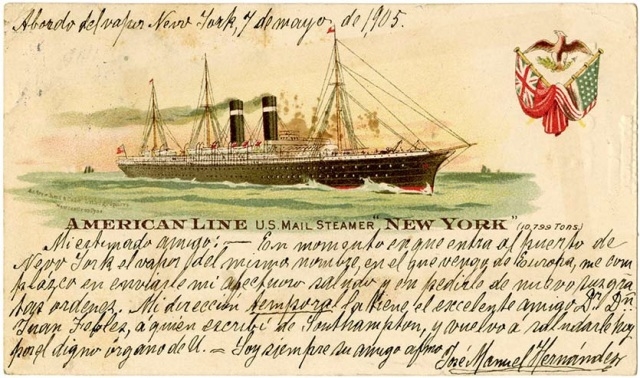 Abordo del vapor New York, 7 de mayo, de 1905.
AMERICAN LINE U.S. MAIL STEAMER "NEW YORK" (10,799 TONS)
Mi estimado amigo: — En momento en que entra al puerto de
New York el vapor del mismo nombre, en el que vengo de Europa, me com
plazco en enviarle mi afectuoso saludo y en pedirle de nuevo sus gra
tas ordenes. Mi dirección temporal la tiene el excelente amigo Dr. Dn.
Juan, a quien escribí de Southampton, y vuelvo a saludarle hoy
por el digno órgano de U. — Soy siempre su amigo afmo.
José Manuel Hernández